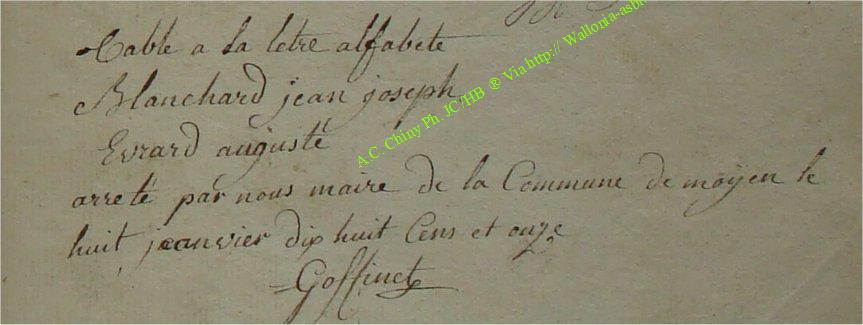 table a la letre alfabete
Blanchard jean joseph
Evrard augusté
arreté par nous maire de la Commune de moyen le
huit jeanvier dix huit Cens et onze
Goffinet
A.C. Chiny Ph. JC/HB ® Via http:// Wallonia-asb